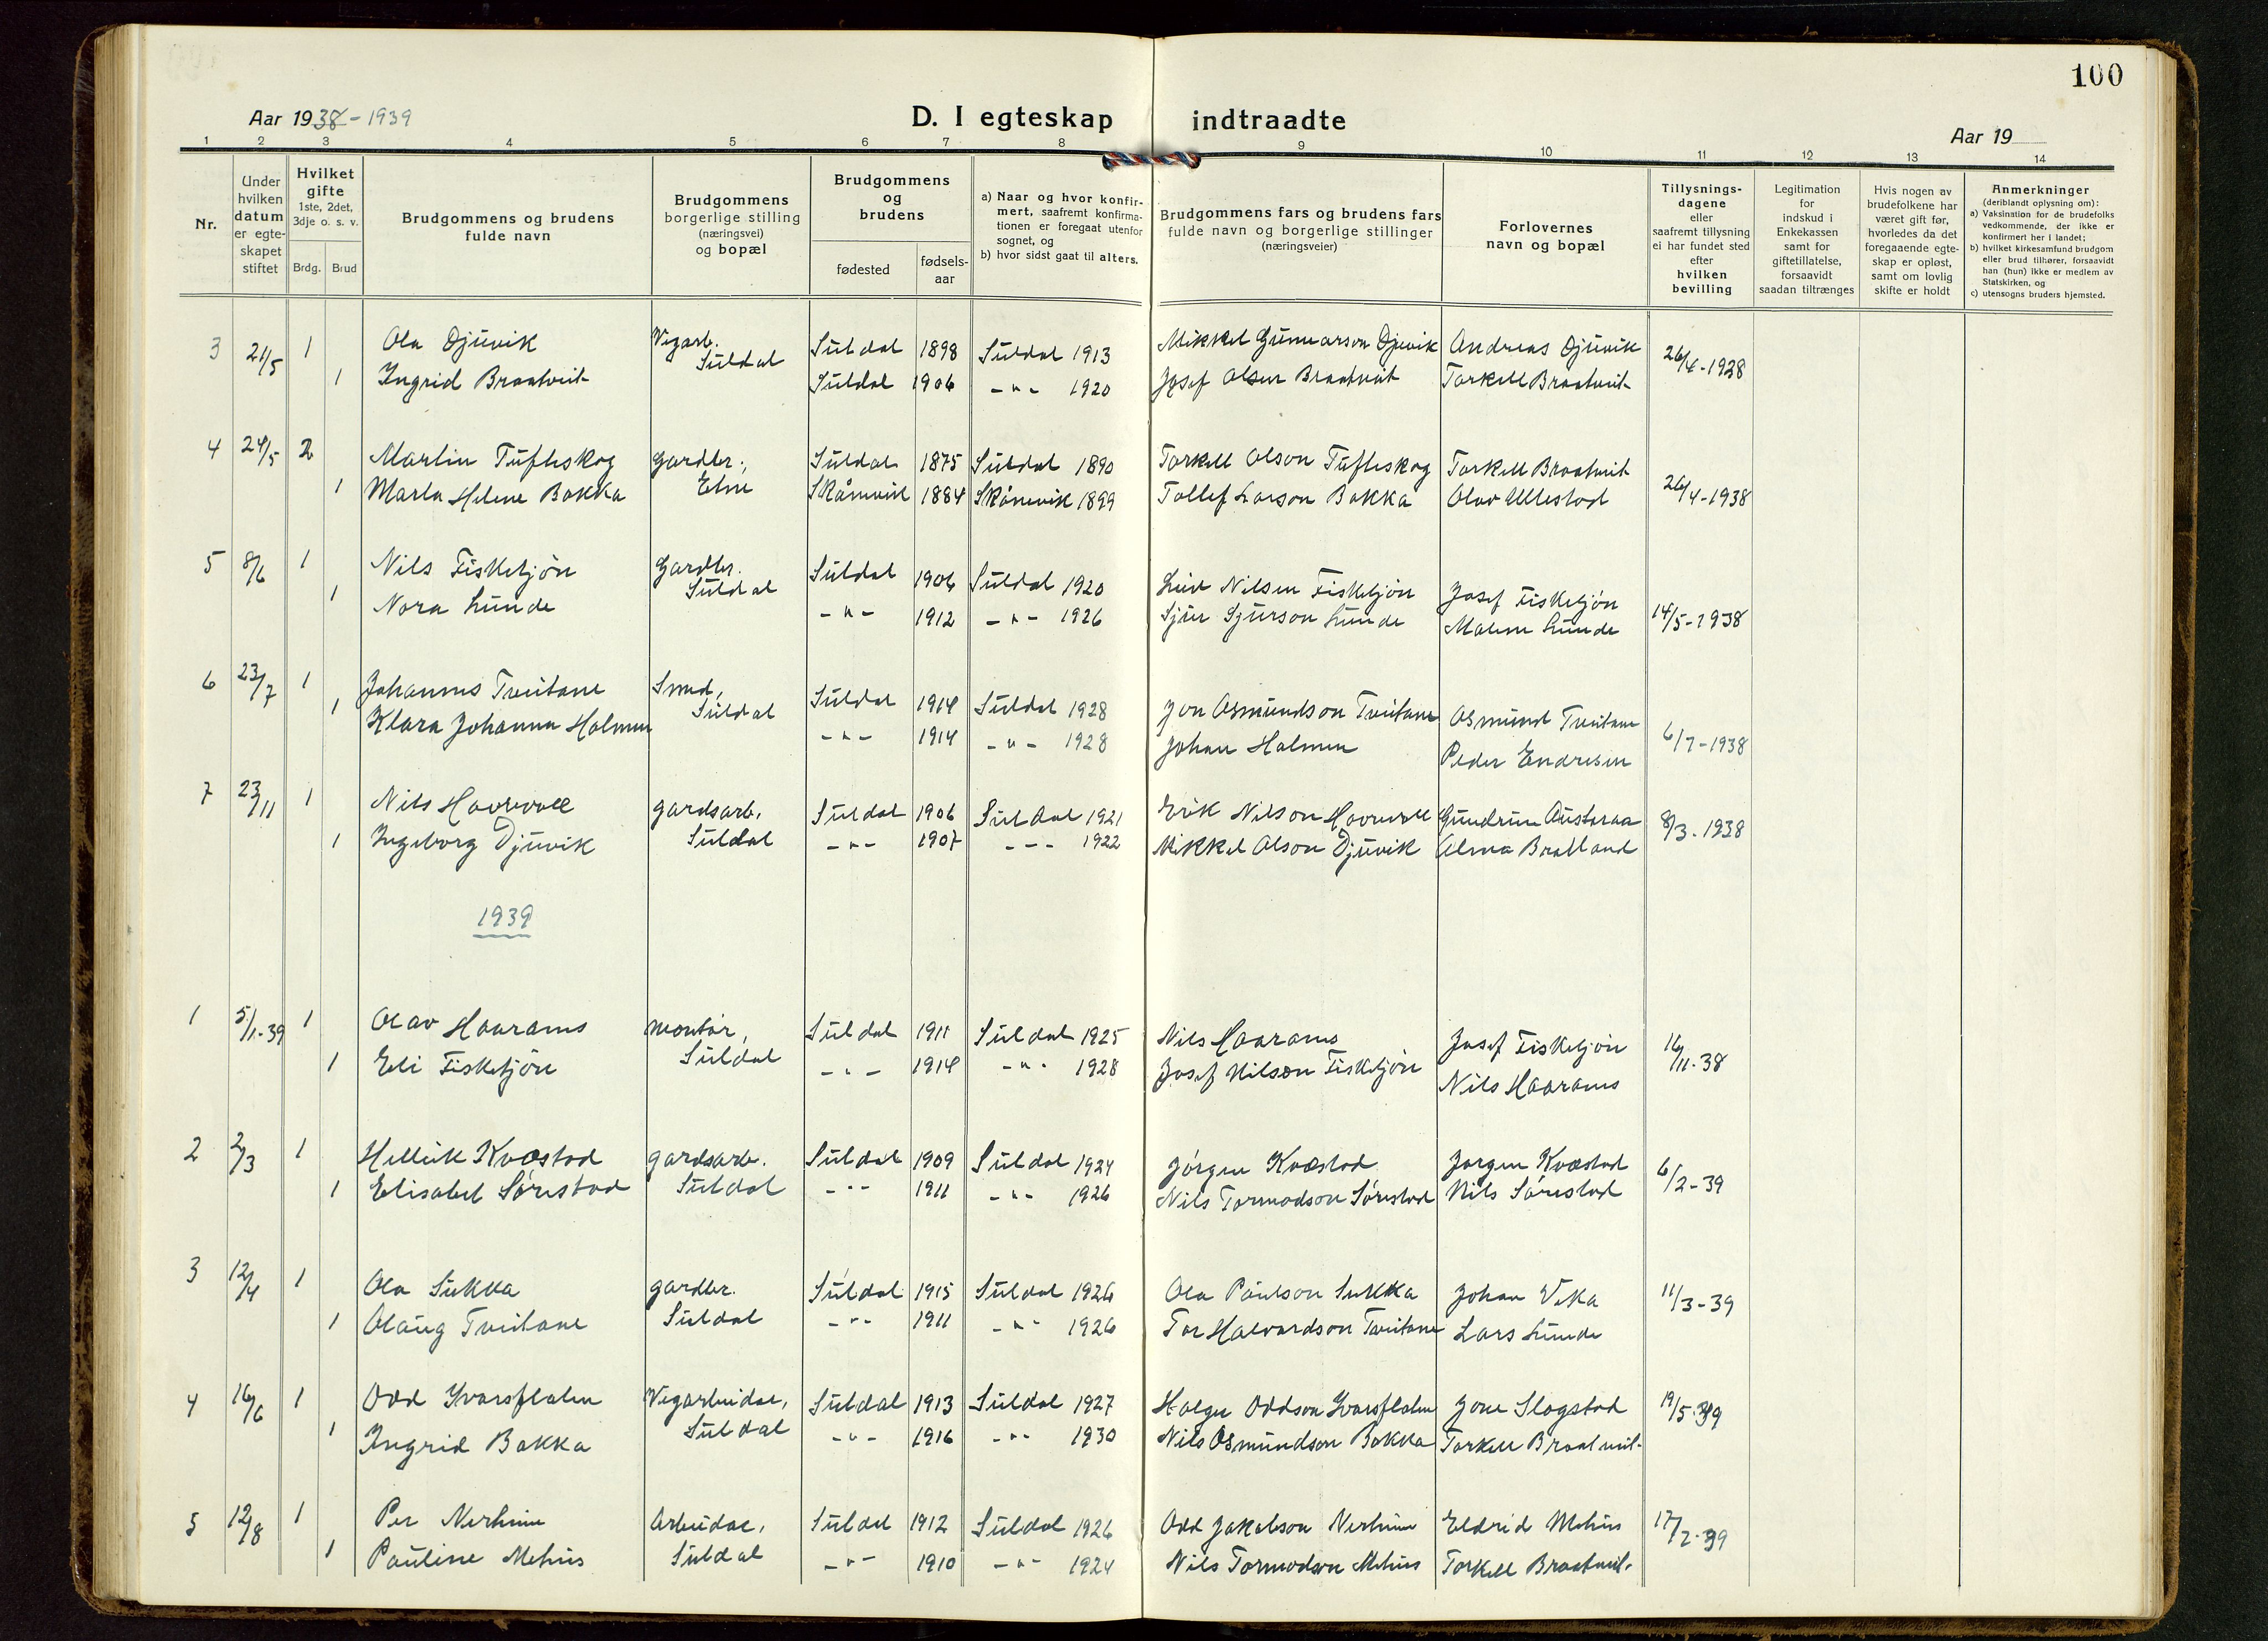 100
Aar 1938-1939
D. I egteskap indtraadte
Aar 19
1 2 3 4 5 6 7 8 9 10 11 12 13 14
Nr.
Under hvilken datum er egte-skapet stiftet
Hvilket gifte 1ste, 2det, 3dje o. s. v.
Brdg. Brud
Brudgommens og brudens fulde navn
Brudgommens borgerlige stilling (næringsvei) og bopæl
Brudgommens og brudens
fødested
fødsels-aar
a) Naar og hvor konfir-mert, saafremt konfirma-tionen er foregaat utenfor sognet, og
b) hvor sidst gaat til alters.
Brudgommens fars og brudens fars fulde navn og borgerlige stillinger (næringsveier)
Forlovernes navn og bopæl
Tillysnings-dagene eller saafremt tillysning ei har fundet sted efter hvilken bevilling
Legitimation for indskud i Enkekassen samt for giftetillatelse, forsaavidt saadan tiltrænges
Hvis nogen av brudefolkene har været gift før, hvorledes da det foregaaende egte-skap er opløst, samt om lovlig skifte er holdt
Anmerkninger (deriblandt oplysning om):
a) Vaksination for de brudefolks vedkommende, der ikke er konfirmert her i landet;
b) hvilket kirkesamfund brudgom eller brud tilhører, forsaavidt han (hun) ikke er medlem av Statskirken, og
c) utensogns bruders hjemsted.
3 21/5 1 Ola Djüvik Vegarb. Süldal Süldal 1898 Süldal 1913 Mikkel Günnarson Djüvik Andreas Djüvik 26/4-1928
1 Ingrid Braatveit Süldal 1906 -"- 1920 Josef Olsen Braatveit Torkell Braatveit
4 24/5 2 Martin Tüfteskog Gardbr., Etne Süldal 1875 Süldal 1890 Torkell Olson Tüfteskog Torkell Braatveit 26/4-1938
1 Marta Helene Bakka Skånevik 1884 Skånevik 1899 Tollef Larson Bakka Olav Ullestad
5 8/6 1 Nils Fisketjøn Gardbr. Süldal Süldal 1906 Süldal 1920 Nilsen Fisketjøn Josef Fisketjøn 14/5-1938
1 Nora Lünde -"- 1912 -"- 1926 Sjür Sjürson Lünde Malene Lünde
6 23/7 1 Johannes Tveitane Smed, Süldal Süldal 1914 Süldal 1928 Jon Asmündson Tveitane Asmünd Tveitane 6/7-1938
1 Klara Johanna Holmen -"- 1914 -"- 1928 Johan Holmen Peder Endresen
7 23/11 1 Nils Havrevoll gardsarb. Süldal Süldal 1906 Süldal 1921 Eirik Nilson Havrevoll Gündrün Aüstaraa 8/3-1938
1 Ingeborg Djüvik -"- 1907 -"- 1922 Mikkel Olson Djüvik Alma Bratland
1939
1 5/1-39 1 Olav Haarams montør, Süldal Süldal 1911 Süldal 1925 Nils Haarams Josef Fisketjøn 16/11-38
1 Eli Fisketjøn -"- 1914 -"- 1928 Josef Nilson Fisketjøn Nils Haarams
2 2/3 1 Helleik Kvæstad gardsarb. Süldal Süldal 1909 Süldal 1924 Jørgen Kvæstad Jørgen Kvæstad 6/2-39
1 Elisabet Sørestad -"- 1911 -"- 1926 Nils Tormodson Sørestad Nils Sørestad
3 12/4 1 Ola Sükka gardbr. Süldal Süldal 1915 Süldal 1926 Ola Paülson Sükka Johan Veka 11/3-39
1 Olaüg Tveitane -"- 1911 -"- 1926 Tor Halvardson Tveitane Lars Lünde
4 16/6 1 Odd Kvarsflaten Vegarbeidar, Süldal Süldal 1913 Süldal 1927 Helge Oddson Kvarsflaten Jone Slogstad 19/5-39
1 Ingrid Bakka -"- 1916 -"- 1930 Nils Osmündson Bakka Torkell Braatveit
5 12/8 1 Per Nerheim Arbeidar, Süldal Süldal 1912 Süldal 1926 Odd Jakobson Nerheim Eldrid Mehüs 17/7-39
1 Paüline Mehüs -"- 1910 -"- 1924 Nils Tormodson Mehüs Torkell Braatveit